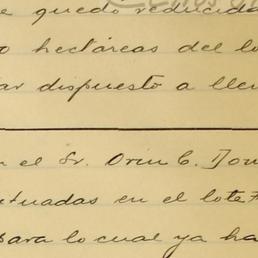 e quedo reducida
o hectáreas del lo
ar dispuesto a lle
n el Sr. Orin C.
ituadas en el lote
para lo cual ya ha